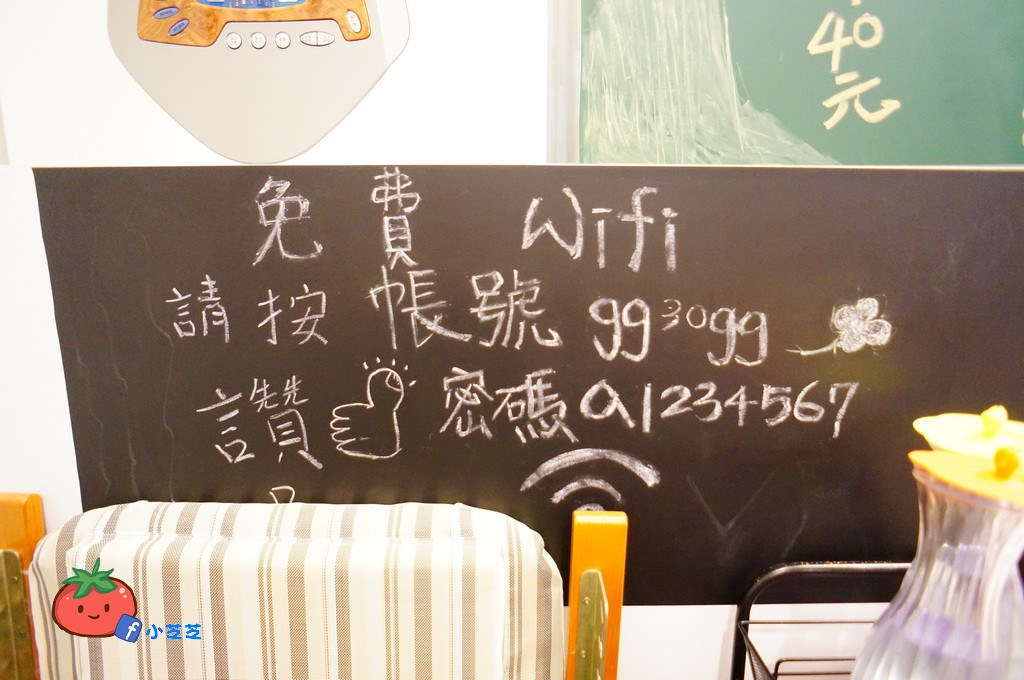 40
元
免費 Wifi
請按 帳號 gg30gg
讚 密碼 a1234567
f 小芝芝